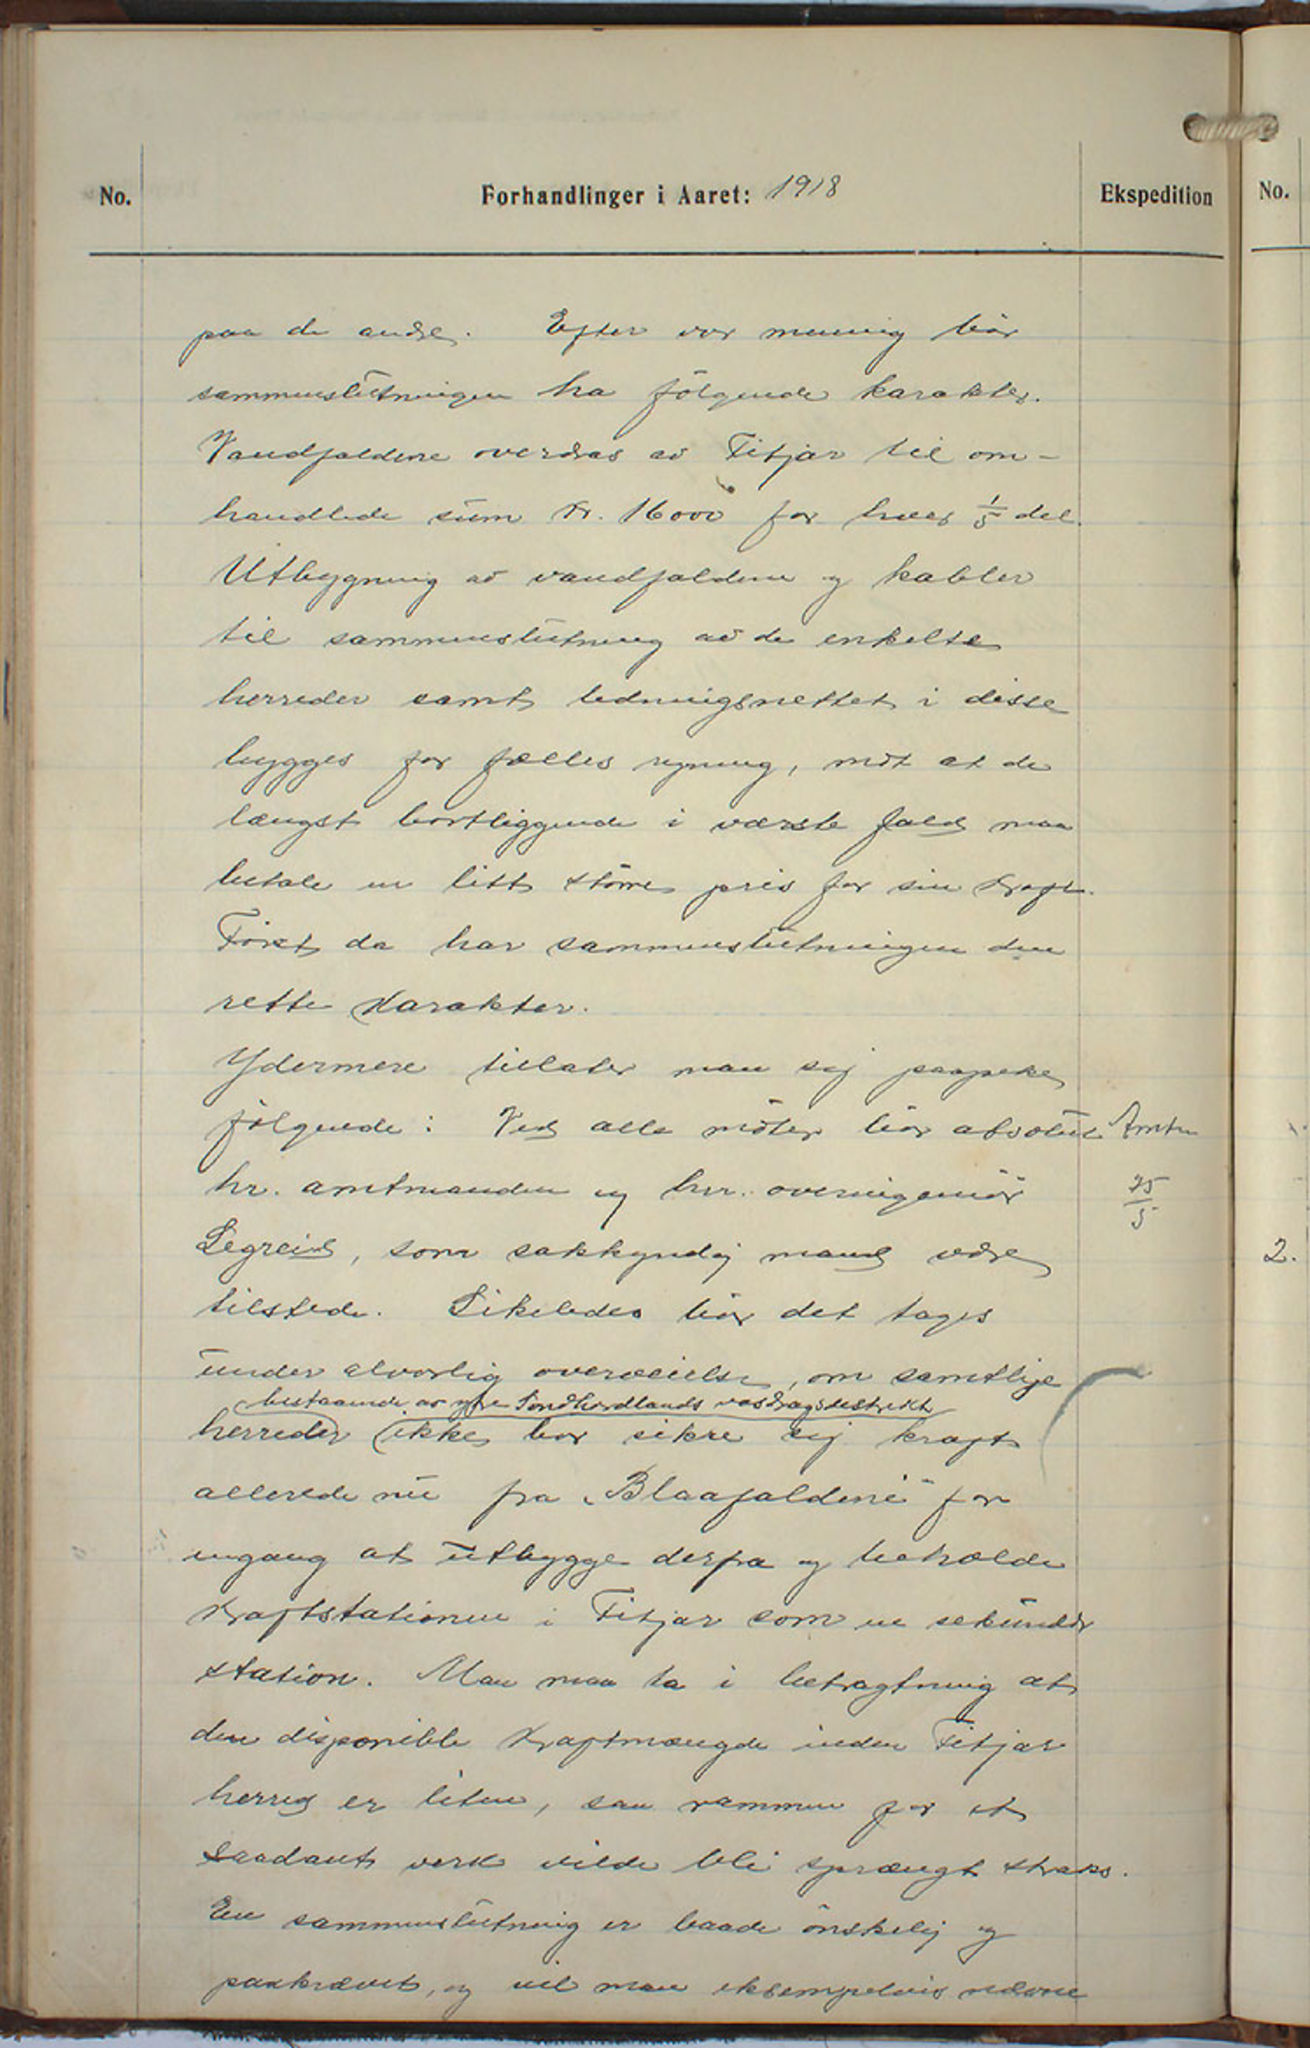 No.
Forhandlinger i Aaret: 1918
Ekspedition
No.
paa de andre. Efter vor mening bör
sammenslutningen ha følgende karakter.
Vandfaldene overdras av Fitjar til om-
handlede sum kr. 16000 for hver 1/5 del.
Utbygning av vandfaldene og kabler
til sammenslutning av de enkelte
herreder samt ledningsnettet i disse
bygges for fælles regning, mót at de
længst bortliggende i værste fald maa
betale en litt större pris for sin kraft.
Först da har sammenslutningen den
rette karakter.
Ydermere tillater man sig paapeke
følgende: Ved alle möter bör absolut
Amtm
hr. amtmanden og hrr. overingeniör
25/5
Legreid, som sakkyndig mand være
2.
tilstede. Likeledes bör det tages
under alvorlig overveielse, om samtlige
bestaaende av ytre Söndhordlands vasdragsdestrikt
herreder ikke bör sikre sig kraft
allerede nu fra "Blaafaldene" for
engang at utbygge derfra og beholde
kraftstationen i Fitjar som en sekundær
station. Man maa ta i betragtning at
den disponible kraftmængde inden Fitjar
herred er liten, saa rammen for et
saadant verk vilde bli sprængt straks.
En sammenslutning er baade önskelig og
paakrævet, og vil man eksempelvis nævne